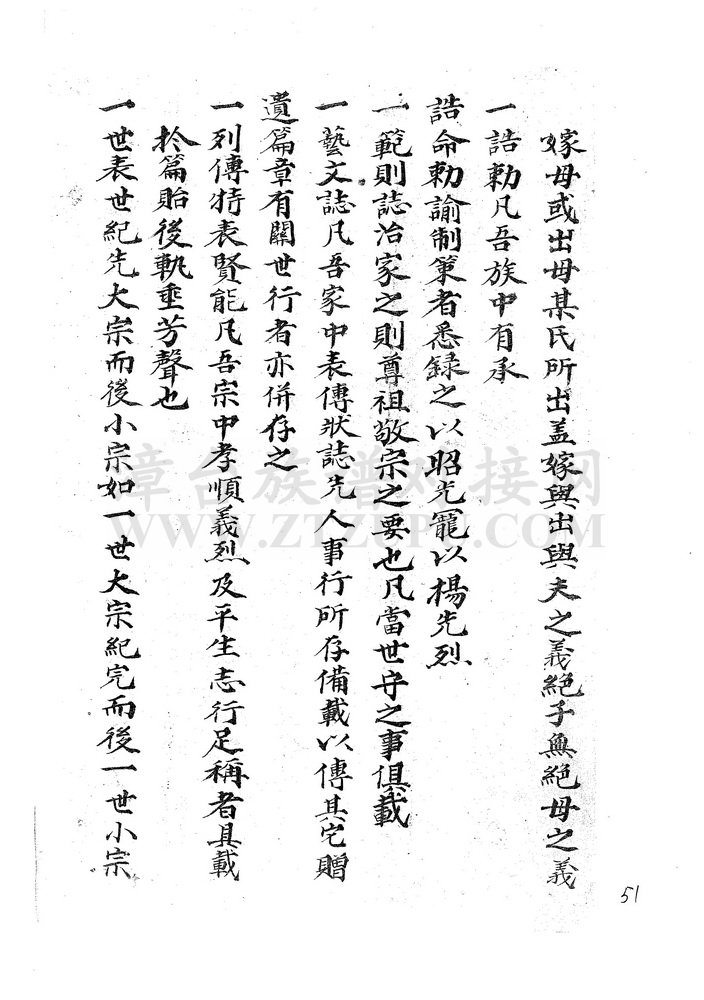 嫁母或出母某氏所出盖嫁與出與夫之義絕子無絕母之義
一誥勅凡吾族中有承
誥命勅諭制策者悉録之以昭光寵以楊先烈
一範則誌治家之則尊祖敬宗之要也凡當世守之事俱載
一藝文誌凡吾家中表傳狀誌先人事行所存備載以傳其它贈
遺篇章有關世行者亦併存之
一列傳特表賢能凡吾宗中孝順義烈及平生志行足稱者具載
於篇貽後軌垂芳聲也
一世表世紀先大宗而後小宗如一世大宗紀完而後一世小宗
51
章台族譜对接网
WWW.ZTZPW.COM